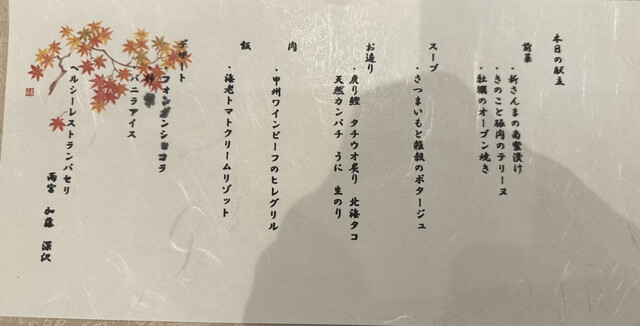 本日の献立
前菜
・新さんまの南蛮漬け
・きのこと豚肉のテリーヌ
・牡蠣のオーブン焼き
スープ
・さつまいもと雑穀のポタージュ
お造り
・炙り鰹 タチウオ炙り 北海タコ
天然カンパチ うに 生のり
肉
・甲州ワインビーフのヒレグリル
飯
・海老トマトクリームリゾット
デザート
・フォンダンショコラ
・バニラアイス
ヘルシーレストランパセリ
雨宮 加藤 深沢